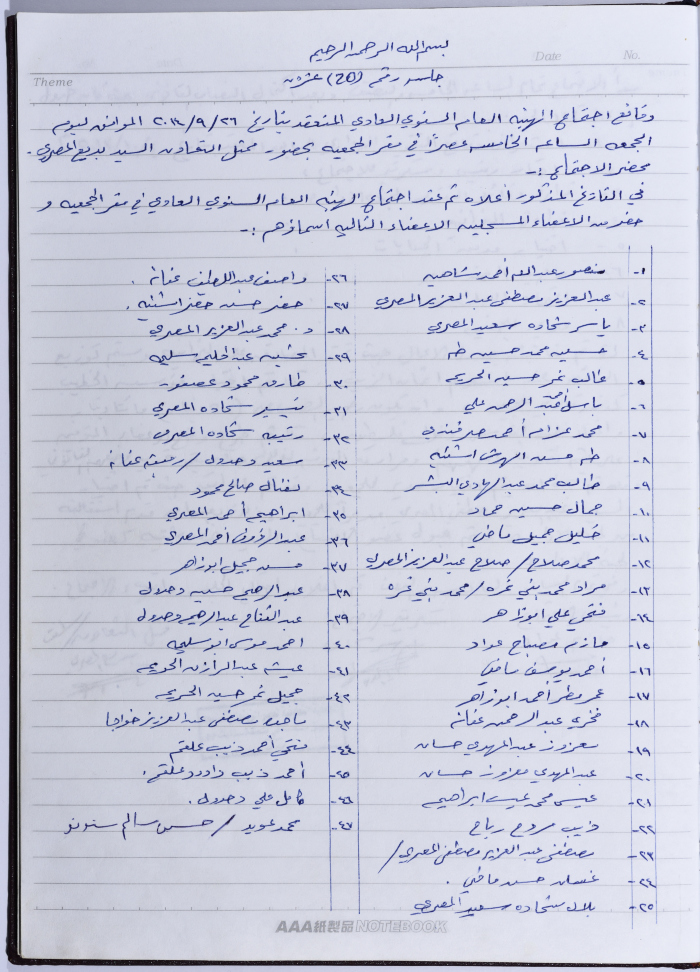 بسم الله الرحمن الرحيم
Date No.
جلسة رقم (20) عشرون
Theme
وقائع اجتماع الهيئة العامة السنوي العادي المنعقد بتاريخ ٢٠١٤/٩/٢٦ الموافق ليوم
الجمعة الساعة الخامسة عصراً في مقر الجمعية بحضور ممثل التعاون السيد بديع المصري.
محضر الاجتماع :-
في التاريخ المذكور أعلاه تم عقد اجتماع الهيئة العامة السنوي العادي في مقر الجمعية و
حضر من الاعضاء المسجلين الاعضاء التالية اسماؤهم :-
١- منصور عبدالله أحمد شاهين
٢- عبدالعزيز مصطفى عبدالعزيز المصري
٣- ياسر شحاده سعيد المصري
٤- حسين محمد حسين طه
٥- غالب نمر حسين الحريم
٦- باسل عبد الرحمن علي
٧- محمد عزام أحمد
٨- طه حسن اشتيه
٩- طالب محمد عبدالهادي البشر
١٠- جمال حسين حماد
١١- خليل جميل ماضي
١٢- محمد صلاح / صلاح عبدالعزيز المصري
١٣- مراد محمد بني غره / محمد بني غره
١٤- فتحي علي ابوزاهر
١٥- حازم مصباح عواد
١٦- أحمد يوسف
١٧- عمر مطر أحمد ابوزاهر
١٨- فخري عبد الرحمن عنانه
١٩- معزوز عبدالمهدي حسان
٢٠- عبدالمهدي معزوز حسان
٢١- عيسى محمد عيسى ابراهيم
٢٢- ذيب رباح
٢٣- مصطفى عبدالعزيز مصطفى المصري /
٢٤- غسان حسن ماضي .
٢٥- بلال شحاده سعيد المصري
٢٦- واصف عبداللطيف عنانه .
٢٧- خضر حسن خضر اشتيه .
٢٨- د. محمد عبدالعزيز المصري
٢٩- عبدالحليم سليم
٣٠- طارق محمود عصفور
٣١- تيسير شحاده المصري
٣٢- رتيبه شحاده المصري
٣٣- سعيد دحدول / رفيقه عنانه
٣٤- نضال صالح محمود
٣٥- ابراهيم أحمد المصري
٣٦- عبدالرؤوف أحمد المصري
٣٧- حسن جميل ابوزاهر
٣٨- عبدالرحيم حسين دحدول
٣٩- عبدالفتاح عبدالرحيم دحدول
٤٠- احمد موسى ابوسليم
٤١- عيشه عبدالرازق الحريم
٤٢- جميل نمر حسين الحريم
٤٣- ماجده مصطفى عبدالعزيز خواجا
٤٤- فتحي أحمد ذيب علقم
٤٥- أحمد ذيب داوود علقم .
٤٦- كامل علي دحدول .
٤٧- محمد عويد / حسن سالم سنونو
AAA紙製品 NOTEBOOK